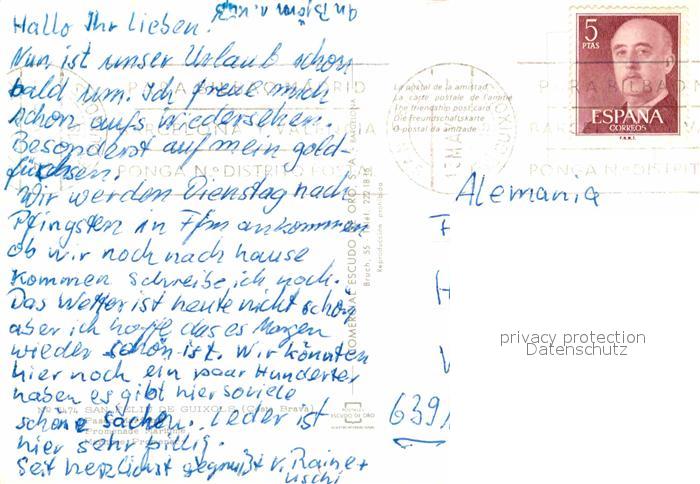 Hallo Ihr Lieben!
Nun ist unser Urlaub schon
bald um. Ich freue mich
schon aufs wiedersehen.
Besonderst auf mein gold-
füchsen!
Wir werden Dienstag nach
Pfingsten in Ffm ankommen
ob wir noch nach hause
kommen schreibe ich noch.
Das Wetter ist heute nicht schön
aber ich hoffe das es Morgen
wieder schön ist. Wir könnten
hier noch ein paar Hunderter
haben es gibt hier soviele
schöne sachen. Leder ist
hier sehr billig.
Seit herzlichst gegrüßt v. Rainer +
Uschi
No 1474 SAN FELIU DE GUIXOLS (Costa Brava)
Promenade Maritime
COMERCIAL ESCUDO DE ORO, S.A.
BARCELONA
Reproducción prohibida
ESCUDO DE ORO
La postal de la amistad
La carte postale de l'amitié
The friendship post card
Die Freundschaftskarte
O postal da amizade
5
PTAS
ESPAÑA
CORREOS
F.N.M.T.
PARA BILBAO
PONGA N.º DISTRITO POSTAL
PONGA N.º DISTRIT
Alemania
privacy protection
Datenschutz
639